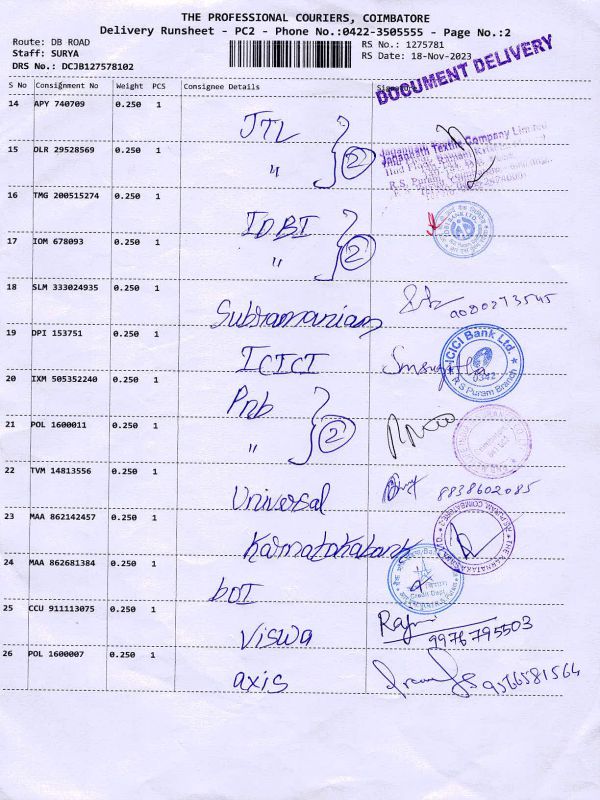 THE PROFESSIONAL COURIERS, COIMBATORE
Delivery Runsheet - PC2 - Phone No.:0422-3505555 - Page No.:2
Route: DB ROAD
Staff: SURYA
DRS No.: DCJB127578102
RS No.: 1275781
RS Date: 18-Nov-2023
DOCUMENT DELIVERY
S No Consignment No Weight PCS Consignee Details
14 APY 740709 0.250 1 JTL
15 DLR 29528569 0.250 1 " 2
Jagannath Textile Company Limited
R.S. Puram,
16 TMG 200515274 0.250 1 IDBI
17 IOM 678093 0.250 1 " 2
18 SLM 333024935 0.250 1 Subramaniam
19 DPI 153751 0.250 1 ICICI
ICICI Bank Ltd.
0342
R S Puram Branch
20 IXM 505352240 0.250 1 Pnb
21 POL 1600011 0.250 1 " 2
22 TVM 14813556 0.250 1 Universal 8838602085
23 MAA 862142457 0.250 1 Karnatakabank
24 MAA 862681384 0.250 1 bOI
Credit Dept
25 CCU 911113075 0.250 1 Viswa 9976795503
26 POL 1600007 0.250 1 axis 9566581564